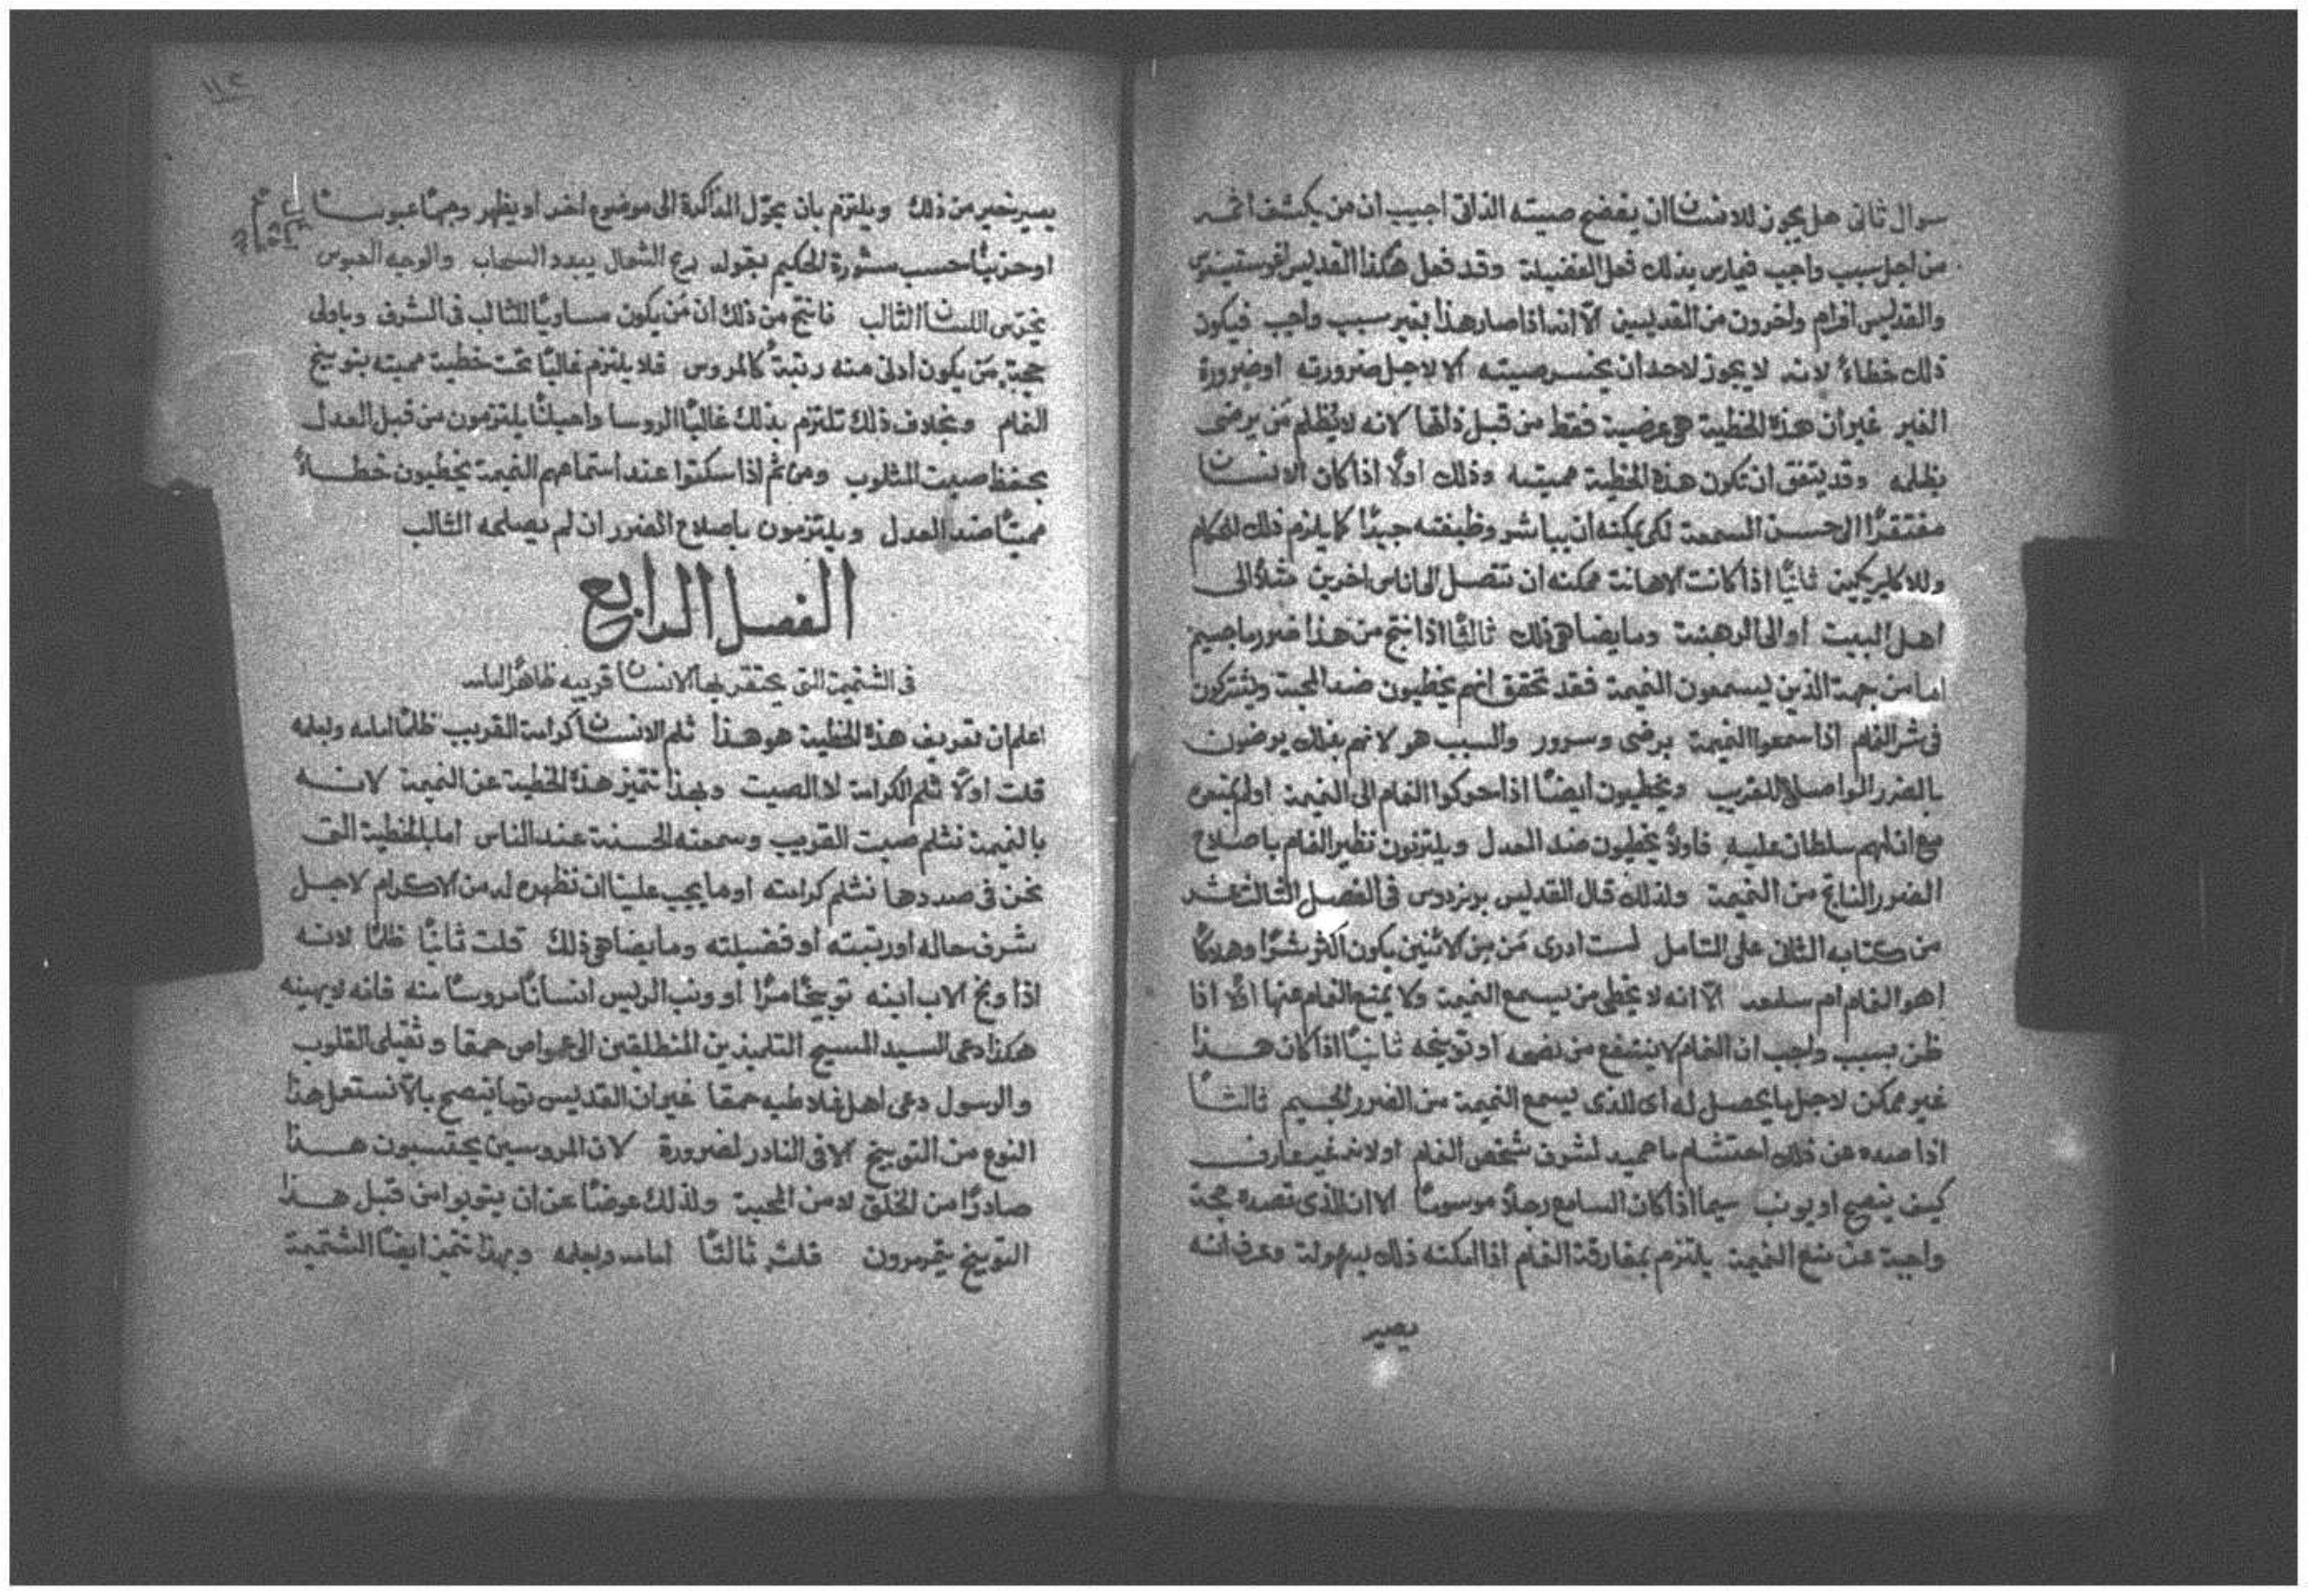 سوال ثانى هل يجوز للانسان ان يفضح صيته الذاتى اجيب ان من يكشف اثمه
من اجل سبب واجب فيمارس بذلك فعل الفضيلة وقد فعل هكذا القديس اغوستينوس
والقديس افرام واخرون من القديسين الّا انه اذا صار هذا بغير سبب واجب فيكون
ذلك خطاءً لانه لا يجوز لاحد ان يخسر صيته الا لاجل ضرورته او ضرورة
الغير غير ان هذه الخطية هى عرضية فقط من قبل ذاتها لانه لا يُظلم مَن يرضى
بظلمه وقد يتفق ان تكون هذه الخطية مميته وذلك اولًا اذا كان الانسان
مفتقرًا الى حسن السمعة لكى يمكنه ان يباشر وظيفته جيدًا كما يلزم ذلك للحكام
وللاكليريكيين ثانيًا اذا كانت الاهانة ممكنه ان تتصل الى اناس اخرين مثلًا الى
اهل البيت او الى الرهبنة وما يضاهى ذلك ثالثًا اذا نتج من هذا ضررٌ ما جسيم
اما من جهة الذين يسمعون النميمة فقد تحقق انهم يخطيون ضد المحبة ويشتركون
فى شر النمام اذا سمعوا النميمة برضى وسرور والسبب هو لانهم بذلك يرضون
بالضرر الواصل للقريب ويخطيون ايضًا اذا حركوا النمام الى النميمة او لم يمنعوه
مع ان لهم سلطان عليه فاولًا يخطيون ضد العدل ويلتزمون نظير النمام باصلاح
الضرر الناتج من النميمة ولذلك قال القديس برنردوس فى الفصل الثالث عشر
من كتابه الثانى على التامل لست ادرى مَن مِن الاثنين يكون اكثر شرًا وهلاكًا
اهو النمام ام سامعه الّا انه لا يخطى من يسمع النميمة ولا يمنع النمام عنها اولًا اذا
ظن بسبب واجب ان النمام لا ينتفع من نصحه او توبيخه ثانيًا اذا كان هذا
غير ممكن لاجل ما يحصل له اى للذى يسمع النميمة من الضرر الجسيم ثالثًا
اذا صده عن ذلك احتشام ما حميد لشرف شخص النمام او لانه غير عارف
كيف ينصح او يونب سيما اذا كان السامع رجلًا موسوسًا الا ان الذى تصده حجة
واجبة عن منع النميمة يلتزم بمفارقة النمام اذا امكنه ذلك بسهولة وعرف انه
يصير
١١٤
يصير خير من ذلك ويلتزم بان يحوّل المذاكرة الى موضوع اخر او يظهر وجهًا عبوسًا
او حزينًا حسب مشورة الحكيم بقوله ريح الشمال يبدد السحاب والوجه العبوس
يخرس اللسان الثالب فانتج من ذلك ان مَن يكون مساويًا للثالب فى الشرف وباولى
حجةٍ مَن يكون أدنى منه رتبةً كالمروس فلا يلتزم غالبًا تحت خطية مميته بتوبيخ
النمام وبخلاف ذلك تلتزم بذلك غالبًا الروسا واحيانًا يلتزمون من قبل العدل
بحفظ صيت المثلوب ومن ثم اذا سكتوا عند استماعهم النميمة يخطيون خطاءً
مميتًا ضد العدل ويلتزمون باصلاح الضرر ان لم يصلحه الثالب
الفصل الرابع
فى الشتيمة التى يحتقر بها الانسان قريبه ظاهرًا امامه
اعلم ان تعريف هذه الخطية هو هذا ثلم الانسان كرامة القريب ظلمًا امامه وبعلمه
قلت اولًا ثلم الكرامة لا الصيت وبهذا تتميز هذه الخطية عن النميمة لانه
بالنميمة نثلم صيت القريب وسمعته الحسنة عند الناس اما بالخطية التى
نحن فى صددها نثلم كرامته او ما يجب علينا ان نظهره له من الاكرام لاجل
شرف حاله او رتبته او فضيلته وما يضاهى ذلك قلت ثانيًا ظلمًا لانه
اذا وبخ الاب ابنه توبيخًا مرًا او ونب الريس انسانًا مروسًا منه فانه لا يهينه
هكذا دعى السيد المسيح التلميذين المنطلقين الى عمواص حمقا وثقيلى القلوب
والرسول دعى اهل غلاطيه حمقا غير ان القديس توما ينصح بالّا نستعمل هذا
النوع من التوبيخ الا فى النادر لضرورة لان المروسين يحتسبون هذا
صادرًا من الخلق لا من المحبة ولذلك عوضًا عن ان يتوبوا من قبل هذا
التوبيخ يتمرمرون قلت ثالثًا امامه وبعلمه وبهذا تتميز ايضًا الشتيمة